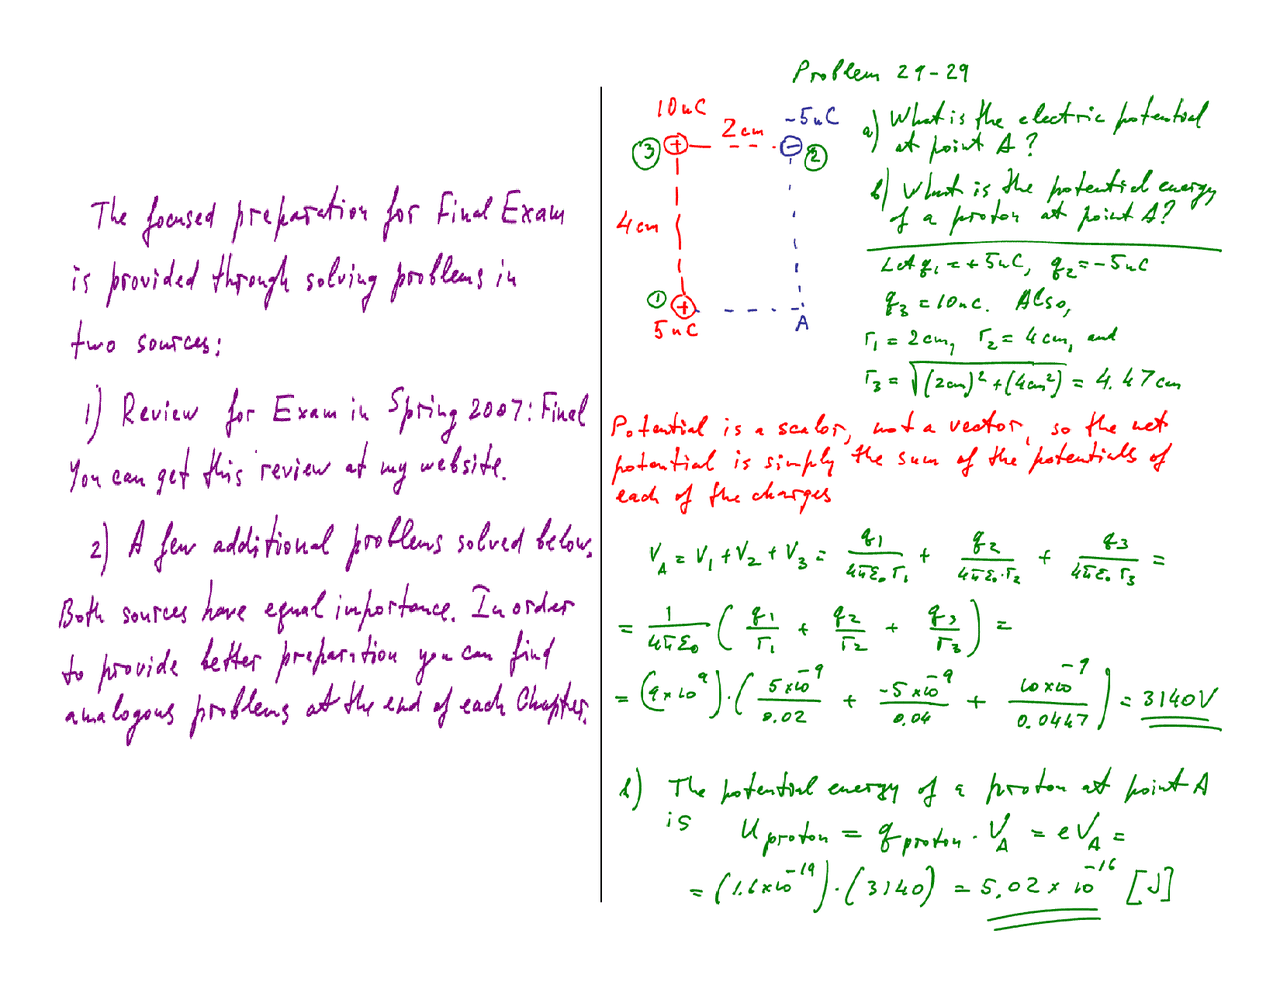 The focused preparation for Final Exam
is provided through solving problems in
two sources:
1) Review for Exam in Spring 2007: Final
You can get this review at my website.
2) A few additional problems solved below.
Both sources have equal importance. In order
to provide better preparation you can find
analogous problems at the end of each Chapter.
Problem 29-29
10nC
2cm
-5nC
③ + - ②
4cm
① +
5nC
A
a) What is the electric potential
at point A?
b) What is the potential energy
of a proton at point A?
Let q₁ = +5nC, q₂ = -5nC
q₃ = 10nC. Also,
r₁ = 2cm, r₂ = 4cm, and
r₃ = √((2cm)² + (4cm²) = 4.47cm
Potential is a scalar, not a vector, so the net
potential is simply the sum of the potentials of
each of the charges
V_A = V₁ + V₂ + V₃ = q₁/4πε₀r₁ + q₂/4πε₀·r₂ + q₃/4πε₀r₃ =
= 1/4πε₀ (q₁/r₁ + q₂/r₂ + q₃/r₃) =
= (9×10⁹)·(5×10⁻⁹/0.02 + -5×10⁻⁹/0.04 + 10×10⁻⁹/0.0447) = 3140V
b) The potential energy of a proton at point A
is U proton = q proton · V_A = eV_A =
= (1.6×10⁻¹⁹)·(3140) = 5.02×10⁻¹⁶ [J]